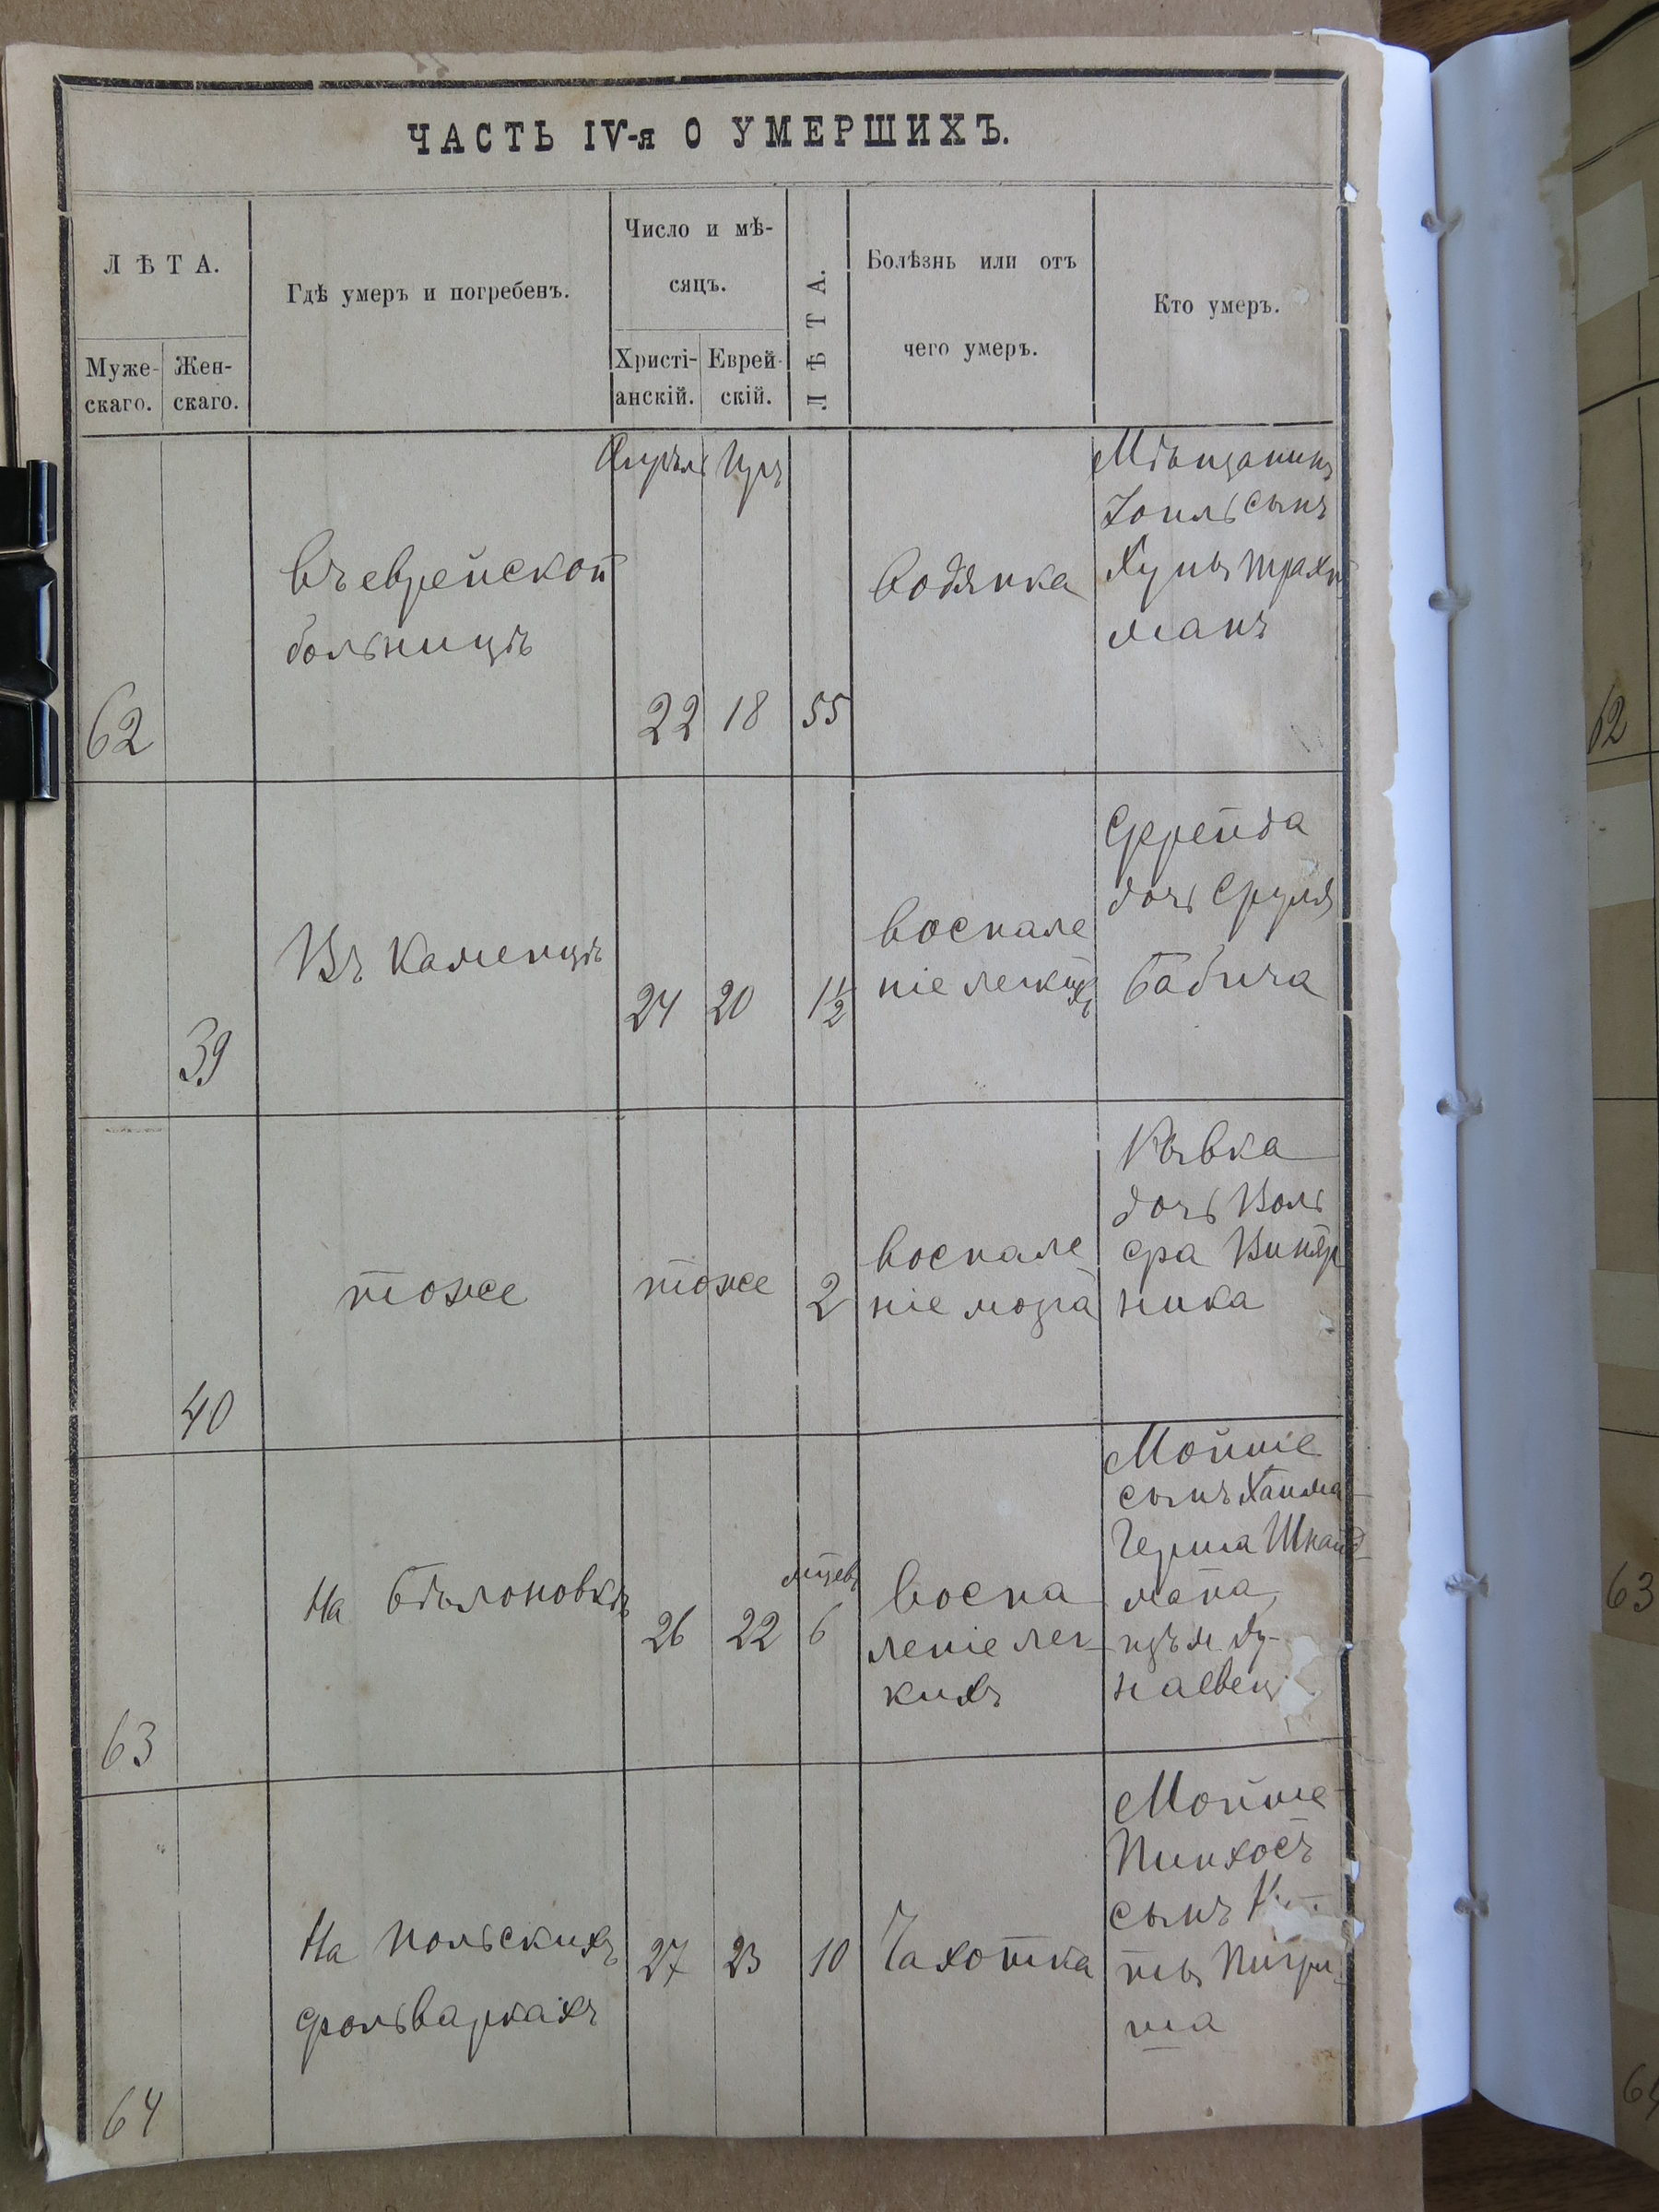 ЧАСТЬ IV-я О УМЕРШИХЪ.
ЛѢТА.
Муже-
скаго.
Жен-
скаго.
Гдѣ умеръ и погребенъ.
Число и мѣ-
сяцъ.
Христі-
анскій.
Еврей-
скій.
ЛѢТА.
Болѣзнь или отъ
чего умеръ.
Кто умеръ.
62
Въ еврейской
больницѣ
Апрѣля
22
Іуръ
18
55
Водянка
Мѣщанинъ
Іоиль сынъ
Хуны Трахт
манъ
39
Въ Каменцѣ
24
20
1 1/2
Воспале
ніе легкихъ
Фрейда
дочь Сруля
Бабича
40
тоже
тоже
2
Воспале
ніе мозга
Ривка
дочь Воль
фа Виняр
ника
63
На Бѣлоновкѣ
26
22
мѣсяцевъ
6
Воспа
леніе лег
кихъ
Мойше
сынъ Хаима
Герша Шнайд
мана,
изъ м. Ду-
наевец
64
На Польскихъ
фольваркахъ
27
23
10
Чахотка
Мойше
Пинхосъ
сынъ
ты Пигри
ша
62
63
64